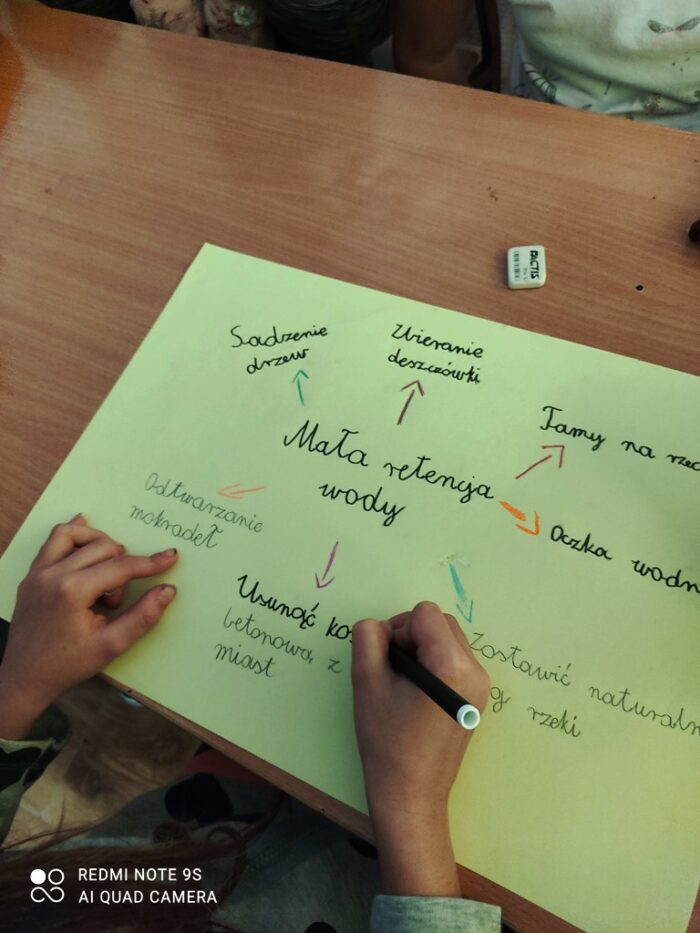 FACTIS
Sadzenie
drzew
Zbieranie
deszczówki
Tamy na rzec
Mała retencja
wody
Oczka wodn
Odtwarzanie
mokradeł
Usunąć kos
betonową z
miast
Zostawić naturaln
g rzeki
REDMI NOTE 9S
AI QUAD CAMERA